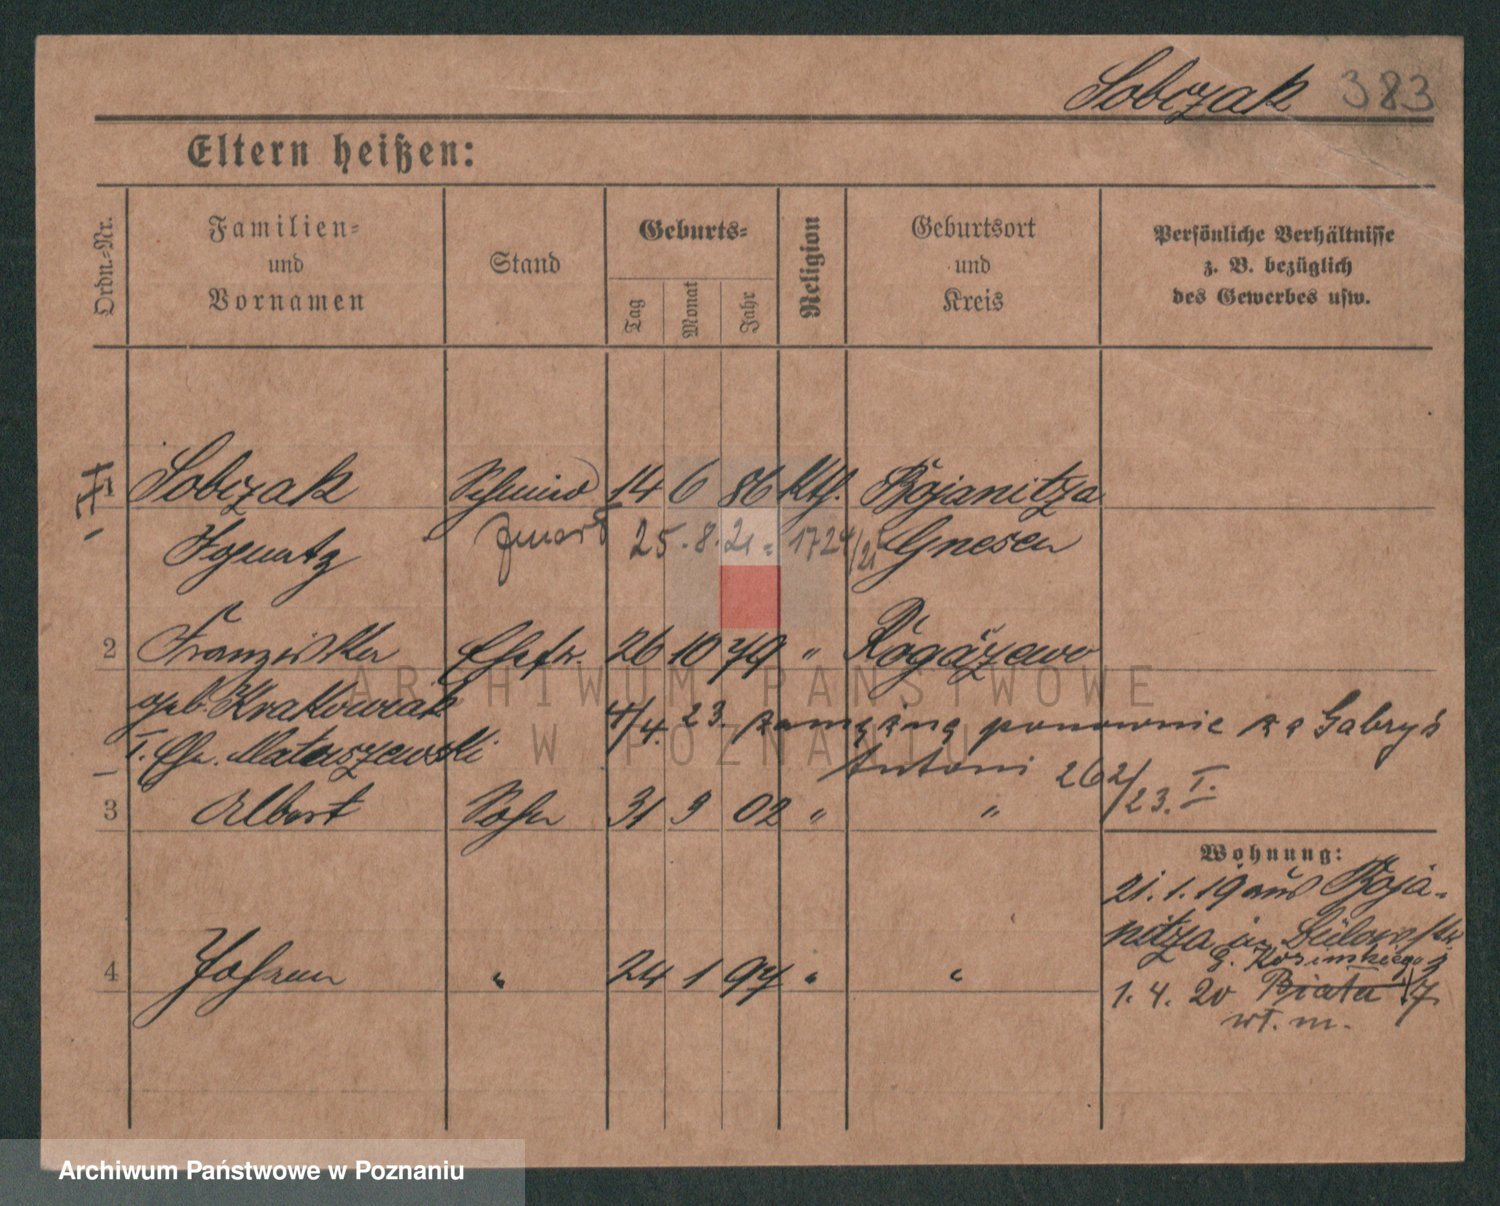 Sobczak 383
Eltern heißen:
Ordn.-Nr.
Familien-
und
Vornamen
Stand
Geburts-
Tag
Monat
Jahr
Religion
Geburtsort
und
Kreis
Persönliche Verhältnisse
z. B. bezüglich
des Gewerbes usw.
1 Sobczak Schmied 14 6 86 Kth. Bojanitza
Ignatz zmarł 25.8.21 = 1724/21 Gnesen
2 Franziska Ehefr. 26 10 79 "
geb. Krakowiak
4/4. 23. zamężna ponownie za Gabryś
I. Eh. Mataszewski
Antoni 262/23. I.
3 Albert Sohn 31 9 02 " "
Wohnung:
21.1.19 aus Boja-
nitza in
4 Johann " 24 1 97 " "
1. 4. 20 Biała 17
wł. m.
ARCHIWUM PAŃSTWOWE
W POZNANIU
Archiwum Państwowe w Poznaniu